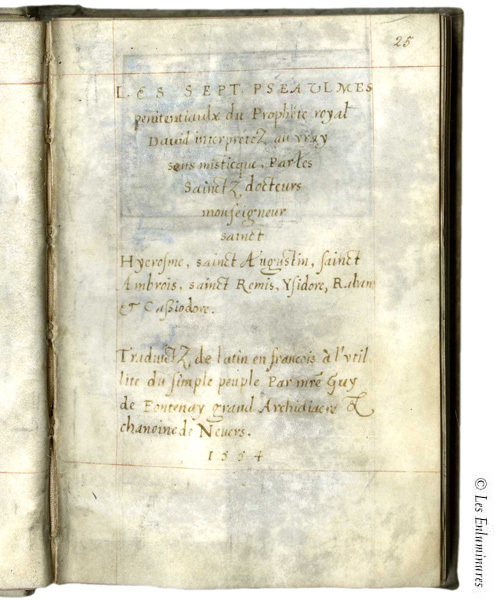 25
LES SEPT. PSEAULMES
penitentiaulx du Prophete royal
Dauid interpretez au vray
sens misticque. Par les
Sainctz docteurs
monseigneur
sainct
Hyerosme, sainct Augustin, sainct
Ambrois, sainct Remis, Ysidore, Raban
et Cassiodore.
Traduictz de latin en francois à l'vtil
lite du simple peuple Par mre Guy
de Fontenay grand Archidiacre &
chanoine de Neuers.
1554
© Les Enluminures